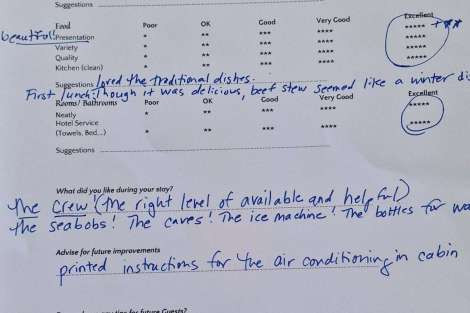 Suggestions
Food Poor OK Good Very Good Excellent
beautful! Presentation * ** *** **** ***** + **
Variety * ** *** **** *****
Quality * ** *** **** *****
Kitchen (clean) * ** *** **** *****
Suggestions loved the traditional dishes.
First lunch, though it was delicious, beef stew seemed like a winter di
Rooms/ Bathrooms Poor OK Good Very Good Excellent
Neatly * ** *** **** *****
Hotel Service
(Towels, Bed...) * ** *** **** *****
Suggestions
What did you like during your stay?
The crew! (the right level of available and helpful)
the seabobs! The caves! The ice machine! The bottles for wa
Advise for future improvements
printed instructions for the air conditioning in cabin
for future Guests?